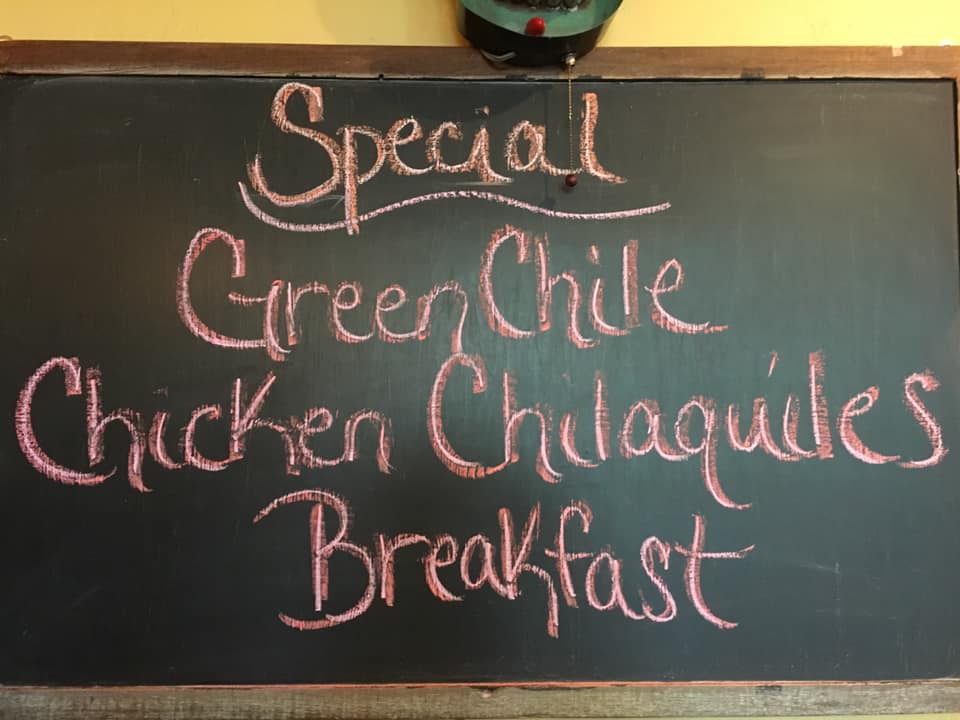 Special
Green Chile
Chicken Chilaquiles
Breakfast